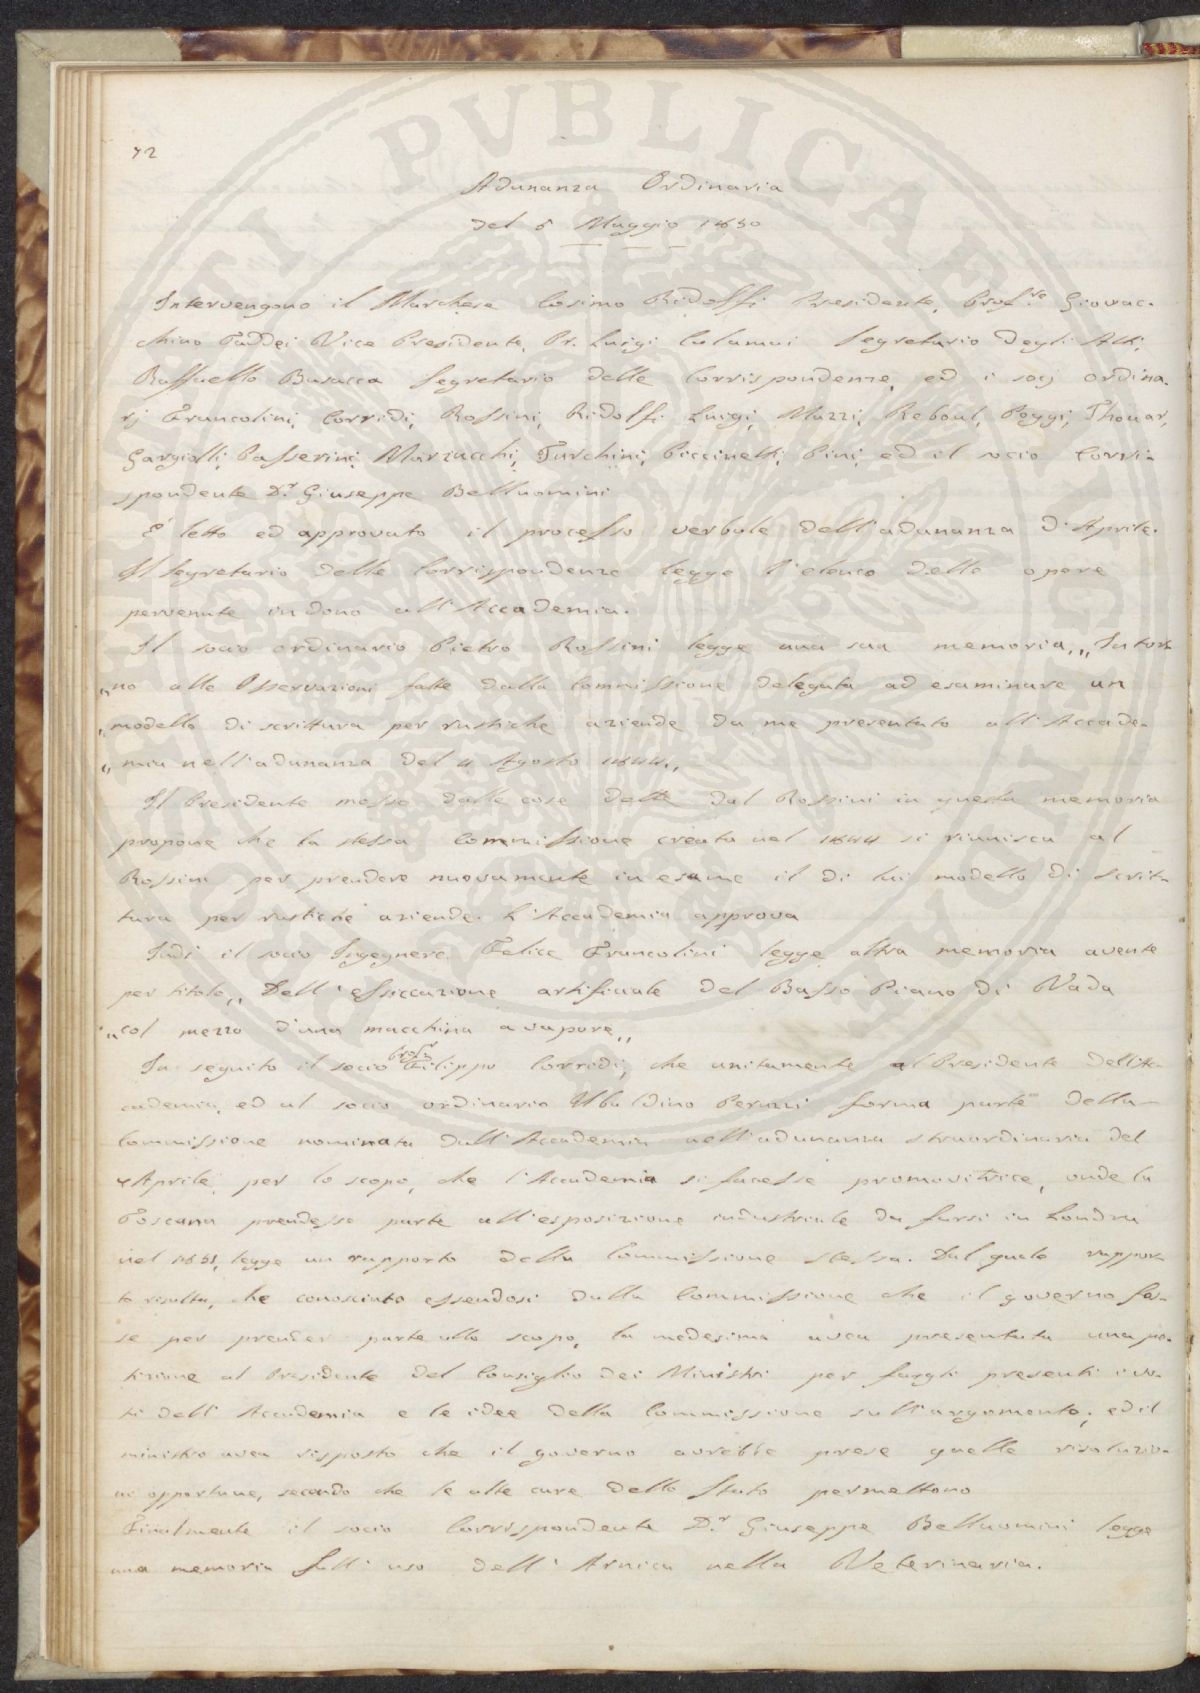 72
Adunanza Ordinaria
del 5 Maggio 1850
Intervengono il Marchese Cosimo Ridolfi Presidente, Profre Giovac-
chino Taddei Vice Presidente, Dr. Luigi Calamai Segretario degli Atti,
Raffaello Busacca Segretario delle Corrispondenze, ed i socj ordina-
rj Francolini, Corridi, Rossini, Ridolfi Luigi, Mazzi, Reboul, Poggi, Thouar,
Gargiolli, Passerini, Marzucchi, Turchini, Piccinetti, Pini, ed il socio Corri-
spondente Dr. Giuseppe Belluomini
È letto ed approvato il processo verbale dell'adunanza d'Aprile.
Il Segretario delle Corrispondenze legge l'elenco delle opere
pervenute in dono all'Accademia.
Il socio ordinario Pietro Rossini legge una sua memoria, „Intor-
„no alle Osservazioni fatte dalla Commissione delegata ad esaminare un
„modello di scrittura per rustiche aziende da me presentato all'Accade-
„mia nell'adunanza del 4 Agosto 1844„
Il Presidente mosso dalle cose dette dal Rossini in questa memoria
propone che la stessa Commissione creata nel 1844 si riunisca al
Rossini per prendere nuovamente in esame il di lui modello di scrit-
tura per rustiche aziende. L'Accademia approva
Indi il socio Ingegnere Felice Francolini legge altra memoria avente
per titolo „Dell'essiccazione artificiale del Basso Piano di Vada
„col mezzo d'una macchina a vapore„
In seguito il socio Profre Filippo Corridi, che unitamente al Presidente dell'Ac-
cademia, ed al socio ordinario Ubaldino Peruzzi forma parte della
Commissione nominata dall'Accademia nell'adunanza straordinaria del
7 Aprile, per lo scopo, che l'Accademia si facesse promovitrice, onde la
Toscana prendesse parte all'esposizione industriale da farsi in Londra
nel 1851, legge un rapporto della Commissione stessa. Dal quale rappor-
to risulta, che conosciuto essendosi dalla Commissione che il governo fos-
se per prender parte allo scopo, la medesima avea presentata una pe-
tizione al Presidente del Consiglio dei Ministri per fargli presenti i vo-
ti dell'Accademia e le idee della Commissione sull'argomento, ed il
ministro avea risposto che il governo avrebbe prese quelle risoluzio-
ni opportune, secondo che le alte cure dello Stato permettono
Finalmente il socio Corrispondente Dr. Giuseppe Belluomini legge
una memoria sull'uso dell'Arnica nella Veterinaria.